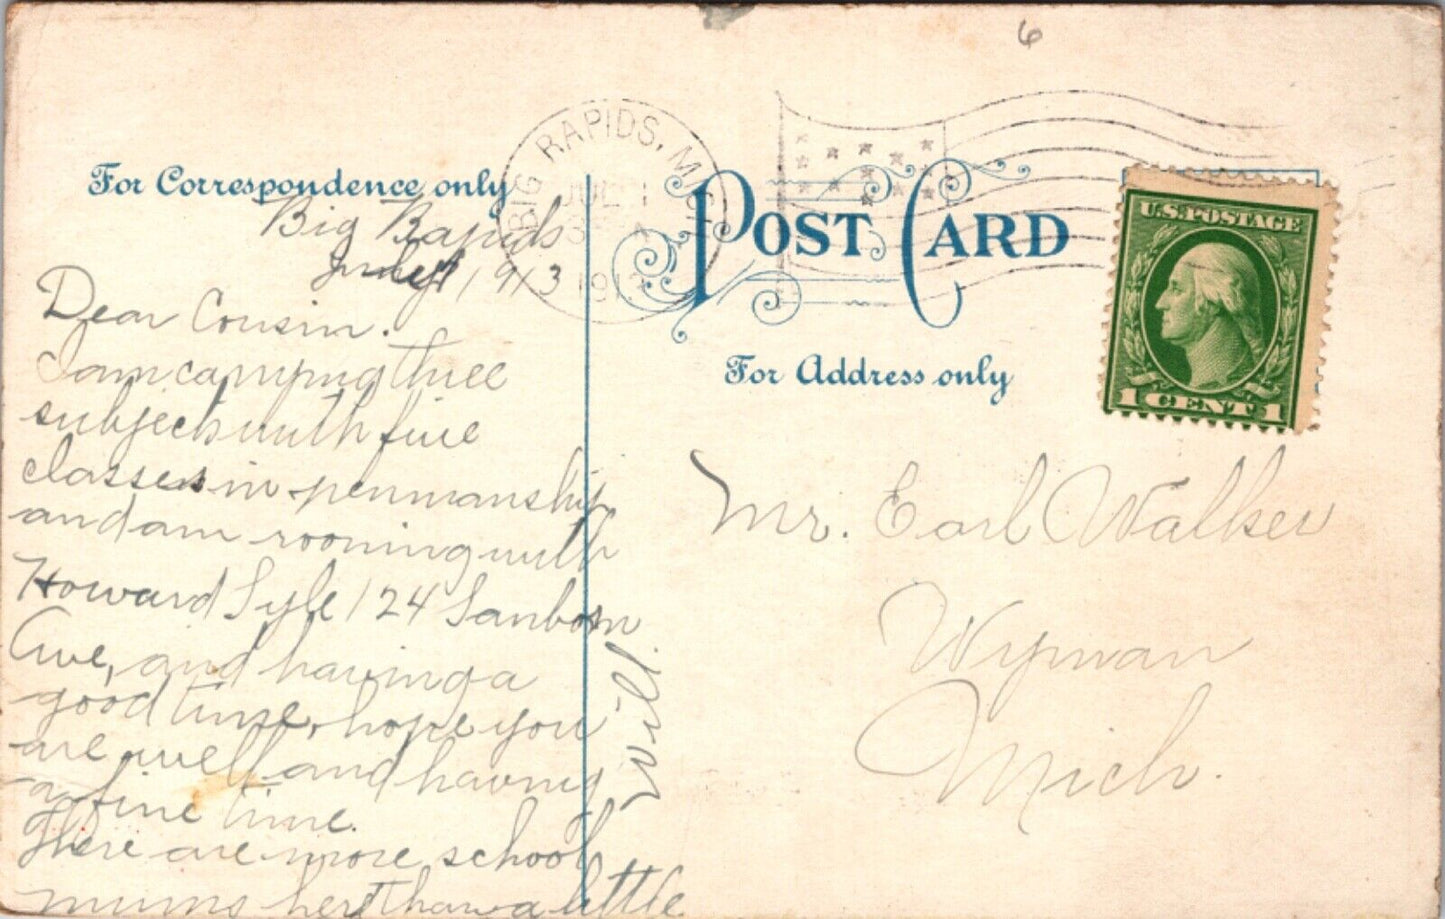 6
For Correspondence only
BIG RAPIDS, MICH
JUL 1
1913
POST CARD
U.S. POSTAGE
1 CENT 1
For Address only
Big Rapids
July 1, 1913
Dear Cousin.
I am carrying three
subjects with five
classes in penmanship
and am rooming with
Howard Lyle 124 Sanborn
Ave, and having a
good time, hope you
are well and having
a fine time.
There are more school
mums here than a little
Will
Mr. Earl Walker
Wyman
Mich.